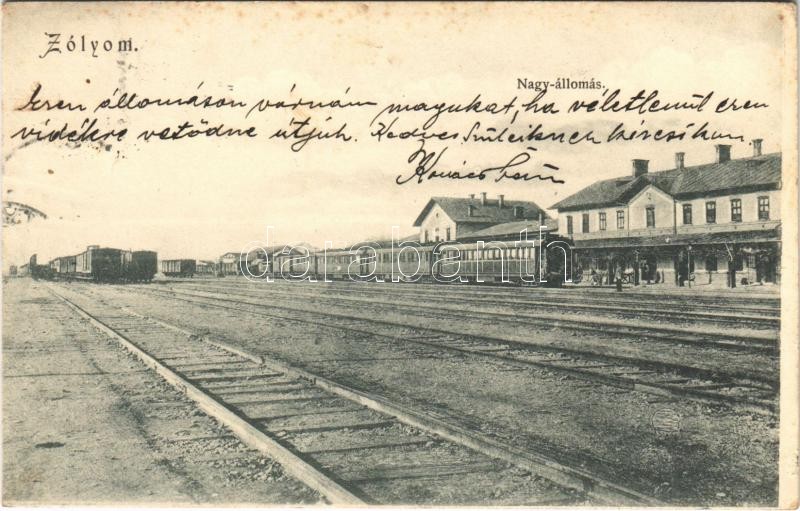 Zólyom.
Nagy-állomás.
Ezen állomáson várnám magukat, ha véletlenül ezen
vidékre vetődne útjuk. Kedves Szüleiknek kézcsókom
Kovács
darabanth